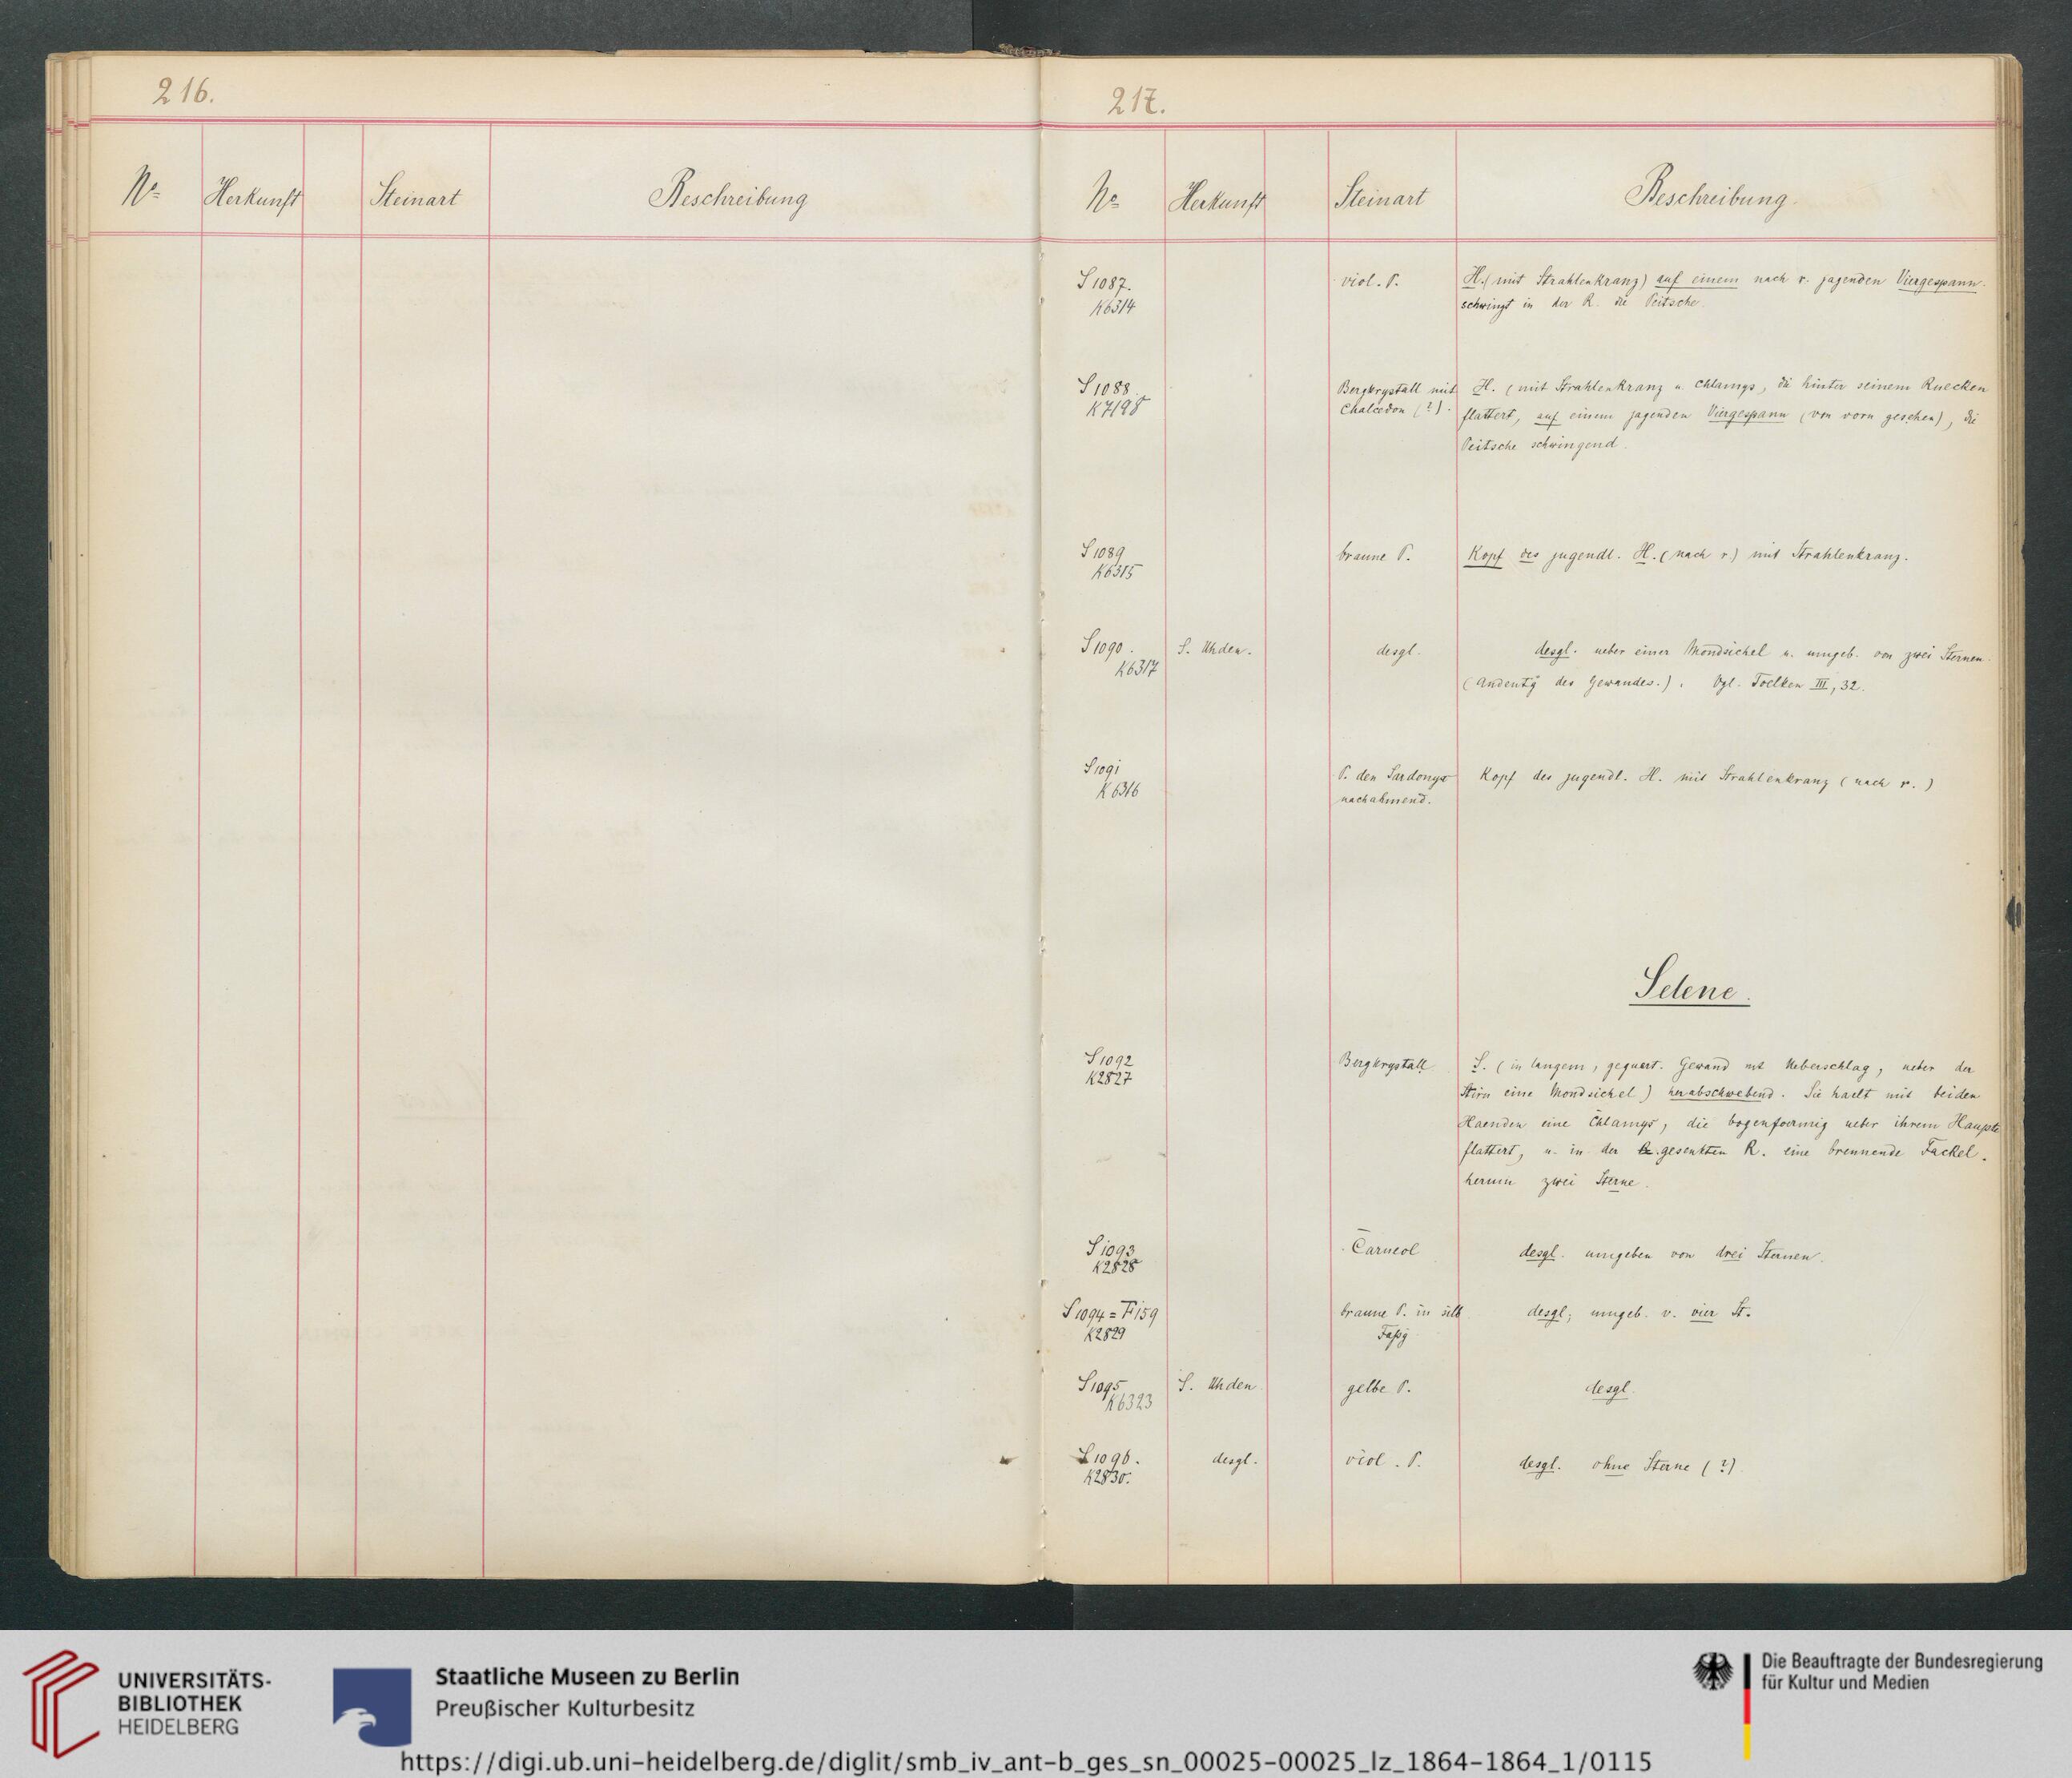 216.
No Herkunft Steinart Beschreibung
217.
No Herkunft Steinart Beschreibung.
S 1087. viol. P. H. (mit Strahlenkranz) auf einem nach r. jagenden Viergespann.
K6314 schwingt in der R. die Peitsche.
S 1088. Bergkrystall mit H. (mit Strahlenkranz u. Chlamys, die hinter seinem Ruecken
K7198 Chalcedon (?). flattert, auf einem jagenden Viergespann (von vorn gesehen), die
Peitsche schwingend.
S 1089 braune P. Kopf des jugendl. H. (nach r.) mit Strahlenkranz.
K6315
S 1090. S. Uhden. desgl. desgl. ueber einer Mondsichel u. umgeb. von zwei Sternen.
K6317 (Andeutg des Gewandes.). Vgl. Toelken III, 32.
S 1091 P. den Sardonyx Kopf des jugendl. H. mit Strahlenkranz (nach r.)
K6316 nachahmend.
Selene.
S 1092 Bergkrystall S. (in langem, geguert. Gewand mit Ueberschlag, ueber der
K2827 Stirn eine Mondsichel) herabschwebend. Sie haelt mit beiden
Haenden eine Chlamys, die bogenfoermig ueber ihrem Haupte
flattert, u. in der gesenkten R. eine brennende Fackel.
herum zwei Sterne.
S 1093 Carneol desgl. umgeben von drei Sternen.
K2828
S 1094 = F 159 braune P. in silb desgl; umgeb. v. vier St.
K2829 Fassg
S 1095 S. Uhden. gelbe P. desgl.
K6323
S 1096. desgl. viol. P. desgl. ohne Sterne (?)
K2830.
UNIVERSITÄTS-
BIBLIOTHEK
HEIDELBERG
Staatliche Museen zu Berlin
Preußischer Kulturbesitz
Die Beauftragte der Bundesregierung
für Kultur und Medien
https://digi.ub.uni-heidelberg.de/diglit/smb_iv_ant-b_ges_sn_00025-00025_lz_1864-1864_1/0115